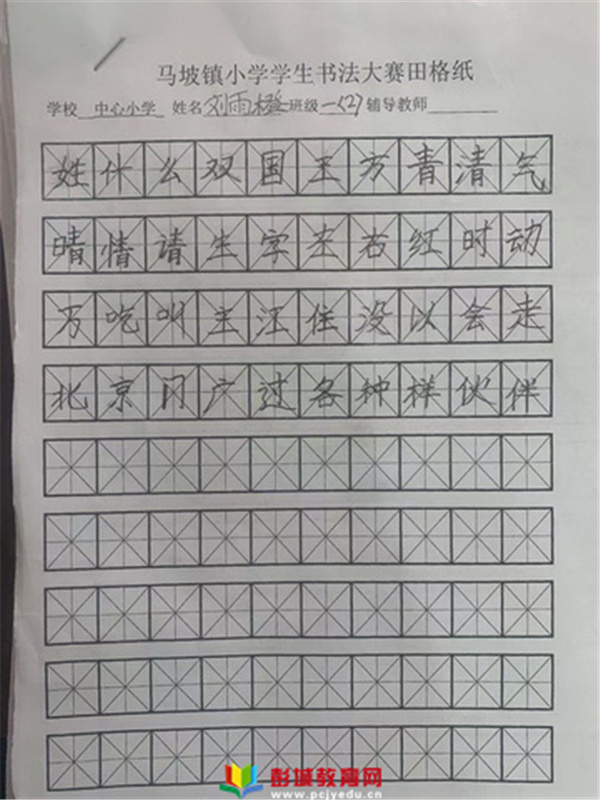 马坡镇小学学生书法大赛田格纸
学校 中心小学 姓名 刘雨橙 班级 一(2) 辅导教师
姓什么双国王方青清气
晴情请生字左右红时动
万吃叫主江住没以会走
北京门广过各种样伙伴
彭城教育网
www.pcjyedu.cn